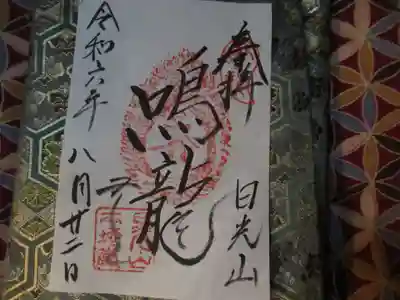 奉拝
日光山
鳴龍
令和六年八月廿二日